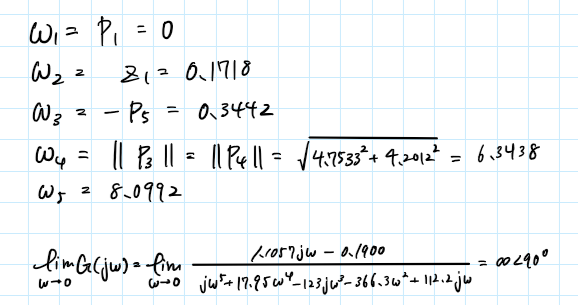 ω₁ = P₁ = 0
ω₂ = z₁ = 0.1718
ω₃ = - P₅ = 0.3442
ω₄ = || P₃ || = || P₄ || = √(4.7533² + 4.2012²) = 6.3438
ω₅ = 8.0992
lim_{ω→0} G(jω) = lim_{ω→0} (1.1057jω - 0.1900) / (jω⁵ + 17.95ω⁴ - 123jω³ - 366.3ω² + 112.2jω) = ∞∠90°